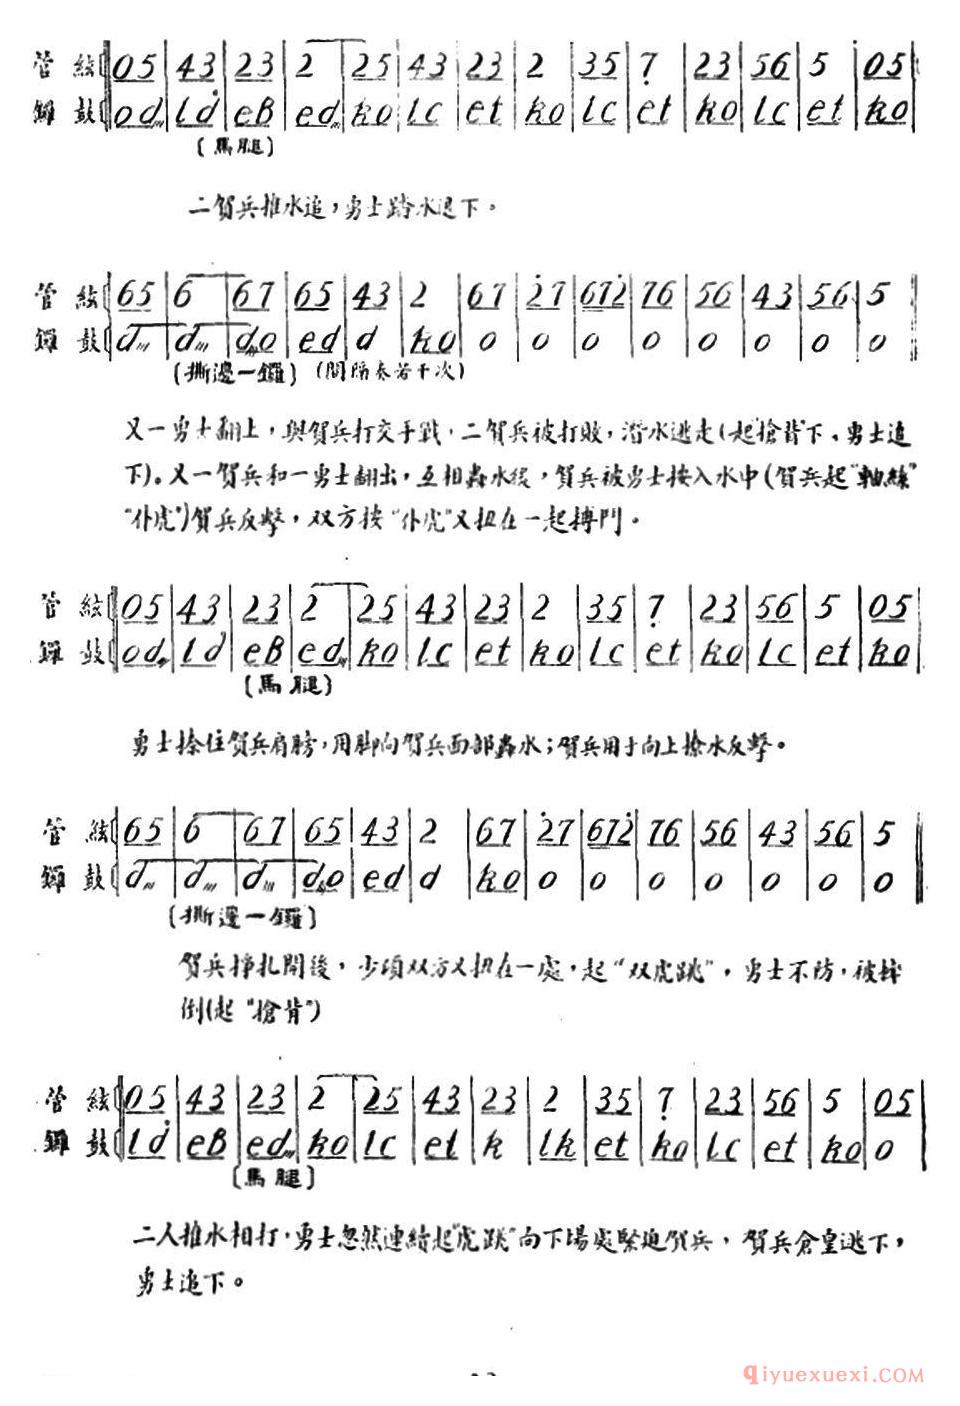 管絃 05 | 43 | 23 | 2 | 25 | 43 | 23 | 2 | 35 | 7 | 23 | 56 | 5 | 05
鑼鼓 od | ld | eB | ed | ko | lc | et | ko | lc | et | ko | lc | et | ko
(馬腿)
二賀兵推水追，勇士踏水退下。
管絃 65 | 6 | 67 | 65 | 43 | 2 | 67 | 27 | 672 | 76 | 56 | 43 | 56 | 5
鑼鼓 d | d | do | ed | d | ko | o | o | o | o | o | o | o | o
(撕邊一鑼) (間隔奏若干次)
又一勇士翻上，與賀兵打交手戰，二賀兵被打敗，潛水逃走(起"搶背"下，勇士追
下)。又一賀兵和一勇士翻出，互相轟水後，賀兵被勇士按入水中(賀兵起"軸絲"
"仆虎")賀兵反擊，双方按"仆虎"又扭在一起搏鬥。
管絃 05 | 43 | 23 | 2 | 25 | 43 | 23 | 2 | 35 | 7 | 23 | 56 | 5 | 05
鑼鼓 od | ld | eB | ed | ko | lc | et | ko | lc | et | ko | lc | et | ko
(馬腿)
勇士拴住賀兵肩膀，用脚向賀兵面部轟水；賀兵用手向上撩水反擊。
管絃 65 | 6 | 67 | 65 | 43 | 2 | 67 | 27 | 672 | 76 | 56 | 43 | 56 | 5
鑼鼓 d | d | d | do | ed | d | ko | o | o | o | o | o | o | o
(撕邊一鑼)
賀兵掙扎開後，少頃双方又扭在一處，起"双虎跳"，勇士不防，被摔
倒(起"搶背")
管絃 05 | 43 | 23 | 2 | 25 | 43 | 23 | 2 | 35 | 7 | 23 | 56 | 5 | 05
鑼鼓 ld | eB | ed | ko | lc | et | k | lk | et | ko | lc | et | ko | o
(馬腿)
二人推水相打，勇士忽然連續起"虎跳"向下場處緊迫賀兵，賀兵倉皇逃下，
勇士追下。
qiyuexuexi.COM